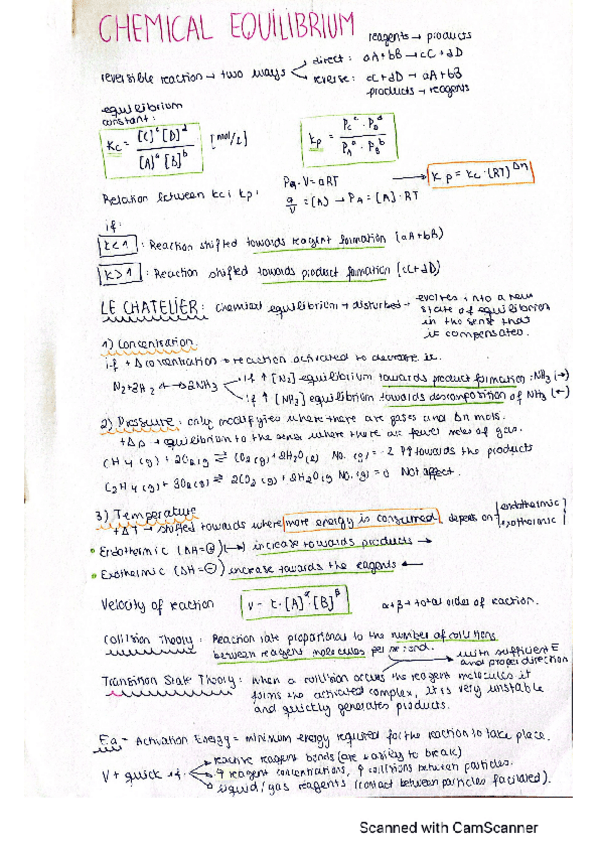 CHEMICAL EQUILIBRIUM
reagents → products
direct: aA+bB → cC+dD
reversible reaction → two ways
reverse: cC+dD → aA+bB
products → reagents
equilibrium
constant:
Kc = [C]^c [D]^d / [A]^a [B]^b [mol/L]
Kp = Pc^c · PD^d / PA^a · PB^b
PA·V = nRT → Kp = Kc · (RT)^Δn
Relation between Kc i Kp:
n/V = [A] → PA = [A] · RT
if:
K<1 : Reaction shifted towards reagent formation (aA+bB)
K>1 : Reaction shifted towards product formation (cC+dD)
LE CHATELIER: chemical equilibrium → disturbed → evolves into a new
state of equilibrium
in the sense that
it compensated.
1) Concentration.
if +Δ concentration → reaction activated to decrease it.
if ↑ [N2] equilibrium towards product formation: NH3 (→)
N2+3H2 ⇌ 2NH3
if ↑ [NH3] equilibrium towards descomposition of NH3 (←)
2) Pressure: only modifyies where there are gases and Δn mols.
+Δp → equilibrium to the sense where there are fewer moles of gas.
CH4(g) + 2O2(g) ⇌ CO2(g) + 2H2O(l) No. (g) = -2 P↑ towards the products
C2H4(g) + 3O2(g) ⇌ 2CO2(g) + 2H2O(g) No. (g) = 0 Not affect.
3) Temperature
+ΔT → shifted towards where more energy is consumed, depends on {endothermic / exothermic}
• Endothermic (ΔH=⊕) (→) increase towards products →
• Exothermic (ΔH=⊖) increase towards the reagents ←
Velocity of reaction v = k·[A]^α·[B]^β α+β → total order of reaction.
Collision Theory: Reaction rate proportional to the number of collisions
between reagent molecules per second.
with sufficient E
and proper direction
Transition State Theory: when a collision occurs the reagent molecules it
forms the activated complex, it is very unstable
and quickly generates products.
Ea = Activation Energy = minimum energy required for the reaction to take place.
reactive reagent bonds (are easily to break)
V + quick if: ↑ reagent concentrations, ↑ collisions between particles.
liquid/gas reagents (contact between particles facilitated).
Scanned with CamScanner